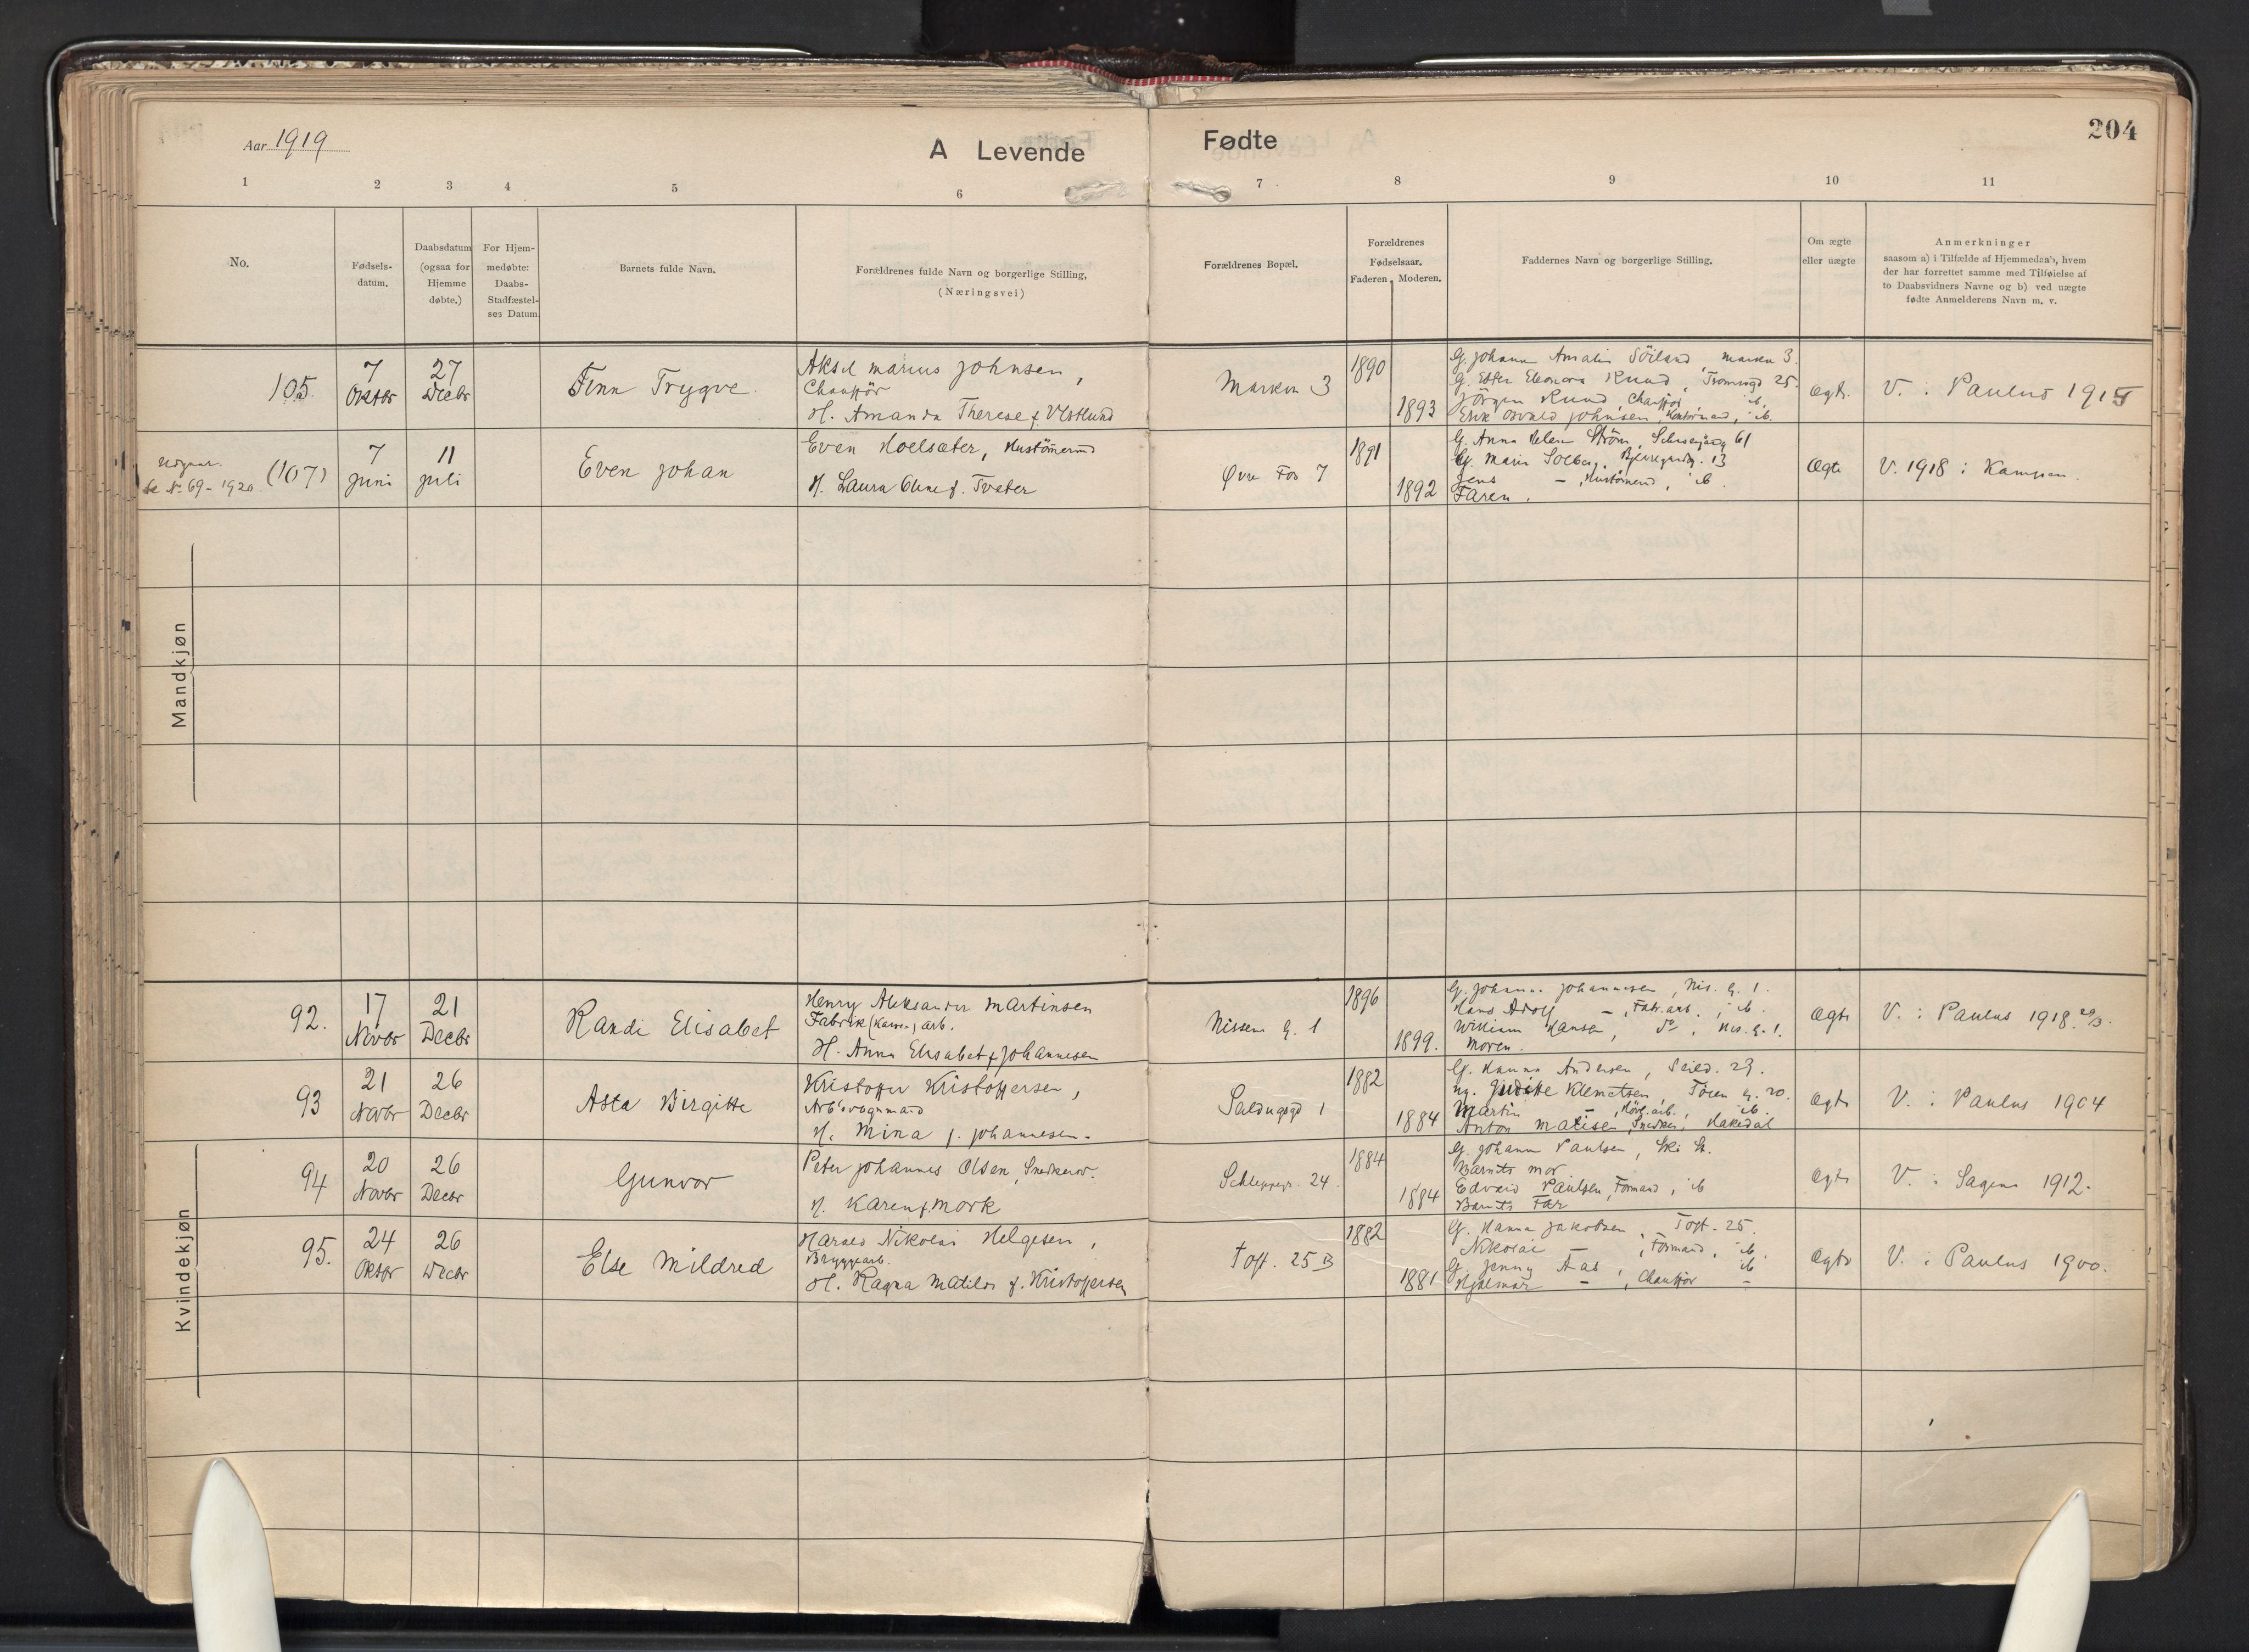 Aar 1919
A Levende Fødte
204
1 2 3 4 5 6 7 8 9 10 11
No.
Fødsels-
datum.
Daabsdatum
(ogsaa for
Hjemme
døbte.)
For Hjem-
medøbte:
Daabs-
Stadfæstel-
ses Datum.
Barnets fulde Navn.
Forældrenes fulde Navn og borgerlige Stilling,
(Næringsvei)
Forældrenes Bopæl.
Forældrenes
Fødselsaar.
Faderen. Moderen.
Faddernes Navn og borgerlige Stilling.
Om ægte
eller uægte
Anmerkninger
saasom a) i Tilfælde af Hjemmedaab, hvem
der har forrettet samme med Tilføielse af
to Daabsvidners Navne og b) ved uægte
fødte Anmelderens Navn m. v.
Mandkjøn
105
7
Oktbr
27
Decbr
Finn Trygve
Aksel Marius Johnsen,
Chauffør
H. Amanda Therese f. Østlund
Markvn 3
1890
1893
G. Johanne Amalie Söiland, Markvn 3.
G. Ester Eleonora Rund, Tromsøgd 25.
Jörgen Rund, Chauffør, ib.
Erik Osvald Johnsen, Kontormand, ib.
Ægte
V. i Paulus 1915
Udgaar.
Se No 69 - 1920
(107)
7
Juni
11
Juli
Even Johan
Even Hoelsæter, Hustömermd
H. Laura Oline f. Tveter
Øvre Fos 7
1891
1892
G. Anna Helene Ström, 61
G. Marie Solberg, 13
Jens - , Hustömermd, ib.
Faren.
Ægte
V. 1918 i Kampen.
Kvindekjøn
92.
17
Novbr
21
Decbr
Randi Elisabet
Henry Aleksander Martinsen
Fabrik arb.
H. Anna Elisabet f. Johannesen
Nissens g. 1
1896
1899.
G. Johanne Johannesen, Nis. g. 1.
Hans Adolf - , Fabr.arb., ib.
William Hansen, do, Nis. g. 1.
Moren.
Ægte
V. i Paulus 1918. 29/3.
93
21
Novbr
26
Decbr
Asta Birgitte
Kristoffer Kristoffersen,
Arb.vognmand
H. Mina f. Johannesen.
1
1882
1884
G. Hanna Andersen, 29.
Ug. Judithe Klemetsen, 20.
Martin - , ib.
Anton Matisen, Snedker, Hakedal
Ægte
V. i Paulus 1904
94
20
Novbr
26
Decbr
Gunvor
Peter Johannes Olsen, Snedkersv.
H. Karen f. Mork
Schleppegr. 24.
1884
1884
G. Johanne Paulsen, Ski St.
Barnets mor
Edvard Paulsen, Formand, ib
Barnets Far
Ægte
V. i Sagene 1912.
95.
24
Oktbr
26
Decbr
Else Mildred
Harald Nikolai Helgesen,
Bryggearb.
H. Ragna Matilde f. Kristoffersen
Toft. 25 B
1882
1881
G. Hanna Jakobsen, Toft. 25.
Nikolai , Formand, ib.
G. Jenny Aas, ib
Hjalmar - , Chauffør -
Ægte
V. i Paulus 1900.